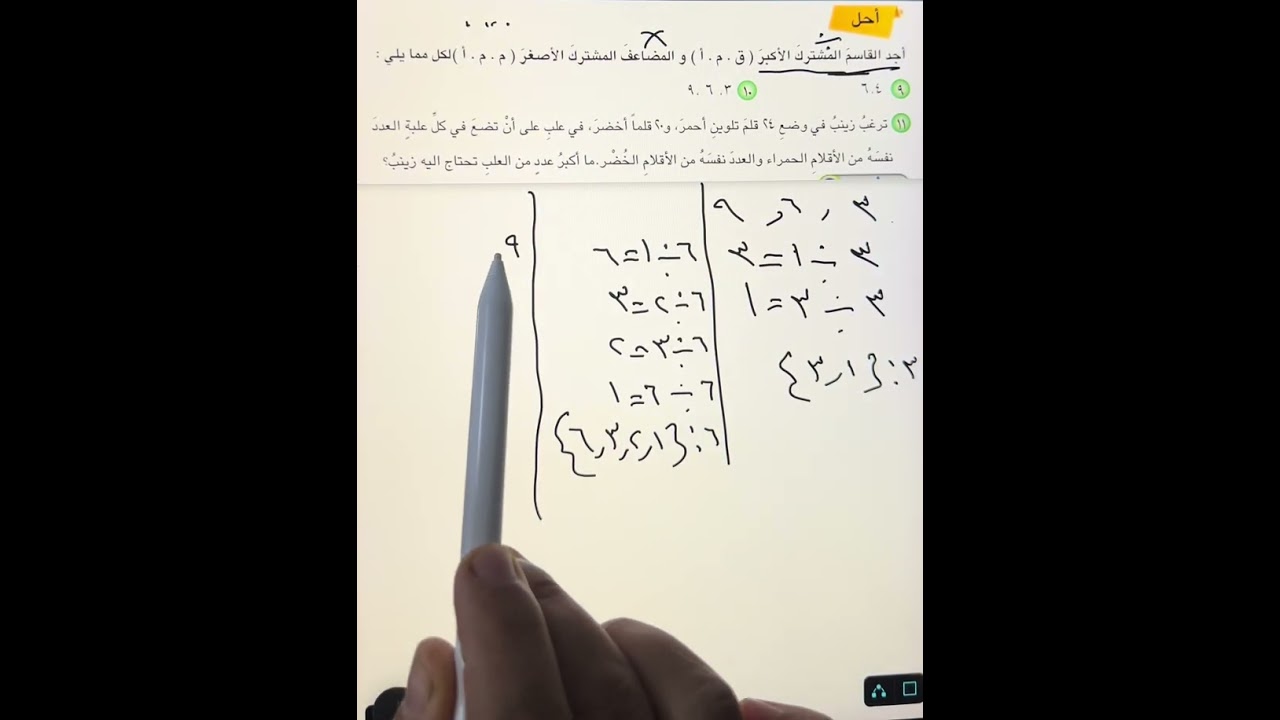 أحل
أجد القاسمَ المُشتركَ الأكبرَ ( ق . م . أ ) و المضاعفَ المشتركَ الأصغرَ ( م . م . أ )لكل مما يلي :
٩ ٦،٤ ١٠ ٩ ،٦ ،٣
١١ ترغبُ زينبُ في وضعِ ٢٤ قلمَ تلوينٍ أحمرَ، و٢٠ قلماً أخضرَ، في علبٍ على أنْ تضعَ في كلِّ علبةٍ العددَ
نفسَهُ من الأقلامِ الحمراء والعددَ نفسَهُ من الأقلامِ الخُضْر.ما أكبرُ عددٍ من العلبِ تحتاج اليه زينبُ؟
٣ , ٦ , ٩
٣ ÷ ١ = ٣
٣ ÷ ٣ = ١
٣ : {١ , ٣}
٦ ÷ ١ = ٦
٦ ÷ ٢ = ٣
٦ ÷ ٣ = ٢
٦ ÷ ٦ = ١
٦ : {١ , ٢ , ٣ , ٦}
٩